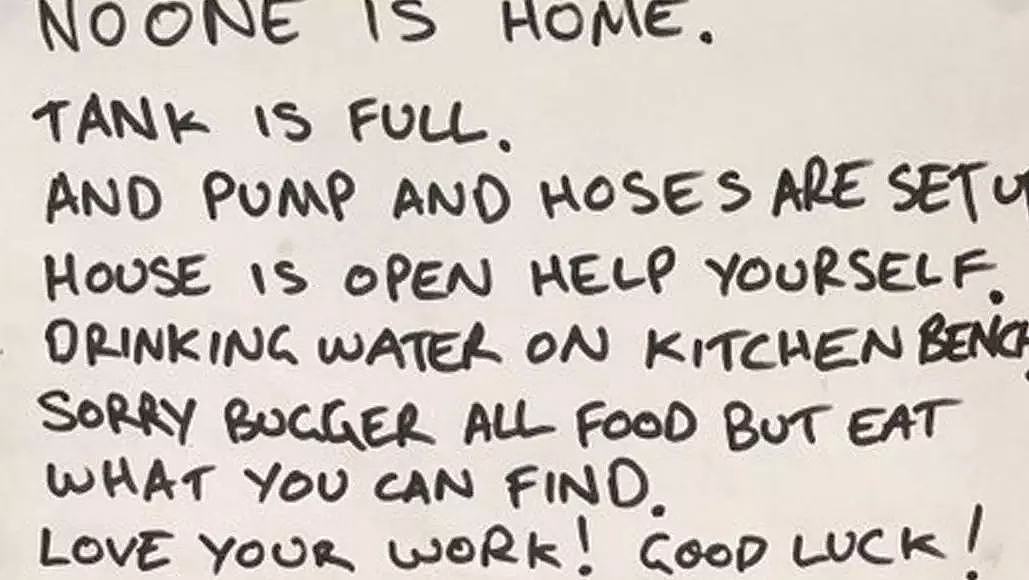 NO ONE IS HOME.
TANK IS FULL.
AND PUMP AND HOSES ARE SET U
HOUSE IS OPEN HELP YOURSELF.
DRINKING WATER ON KITCHEN BENCH
SORRY BUGGER ALL FOOD BUT EAT
WHAT YOU CAN FIND.
LOVE YOUR WORK! GOOD LUCK!